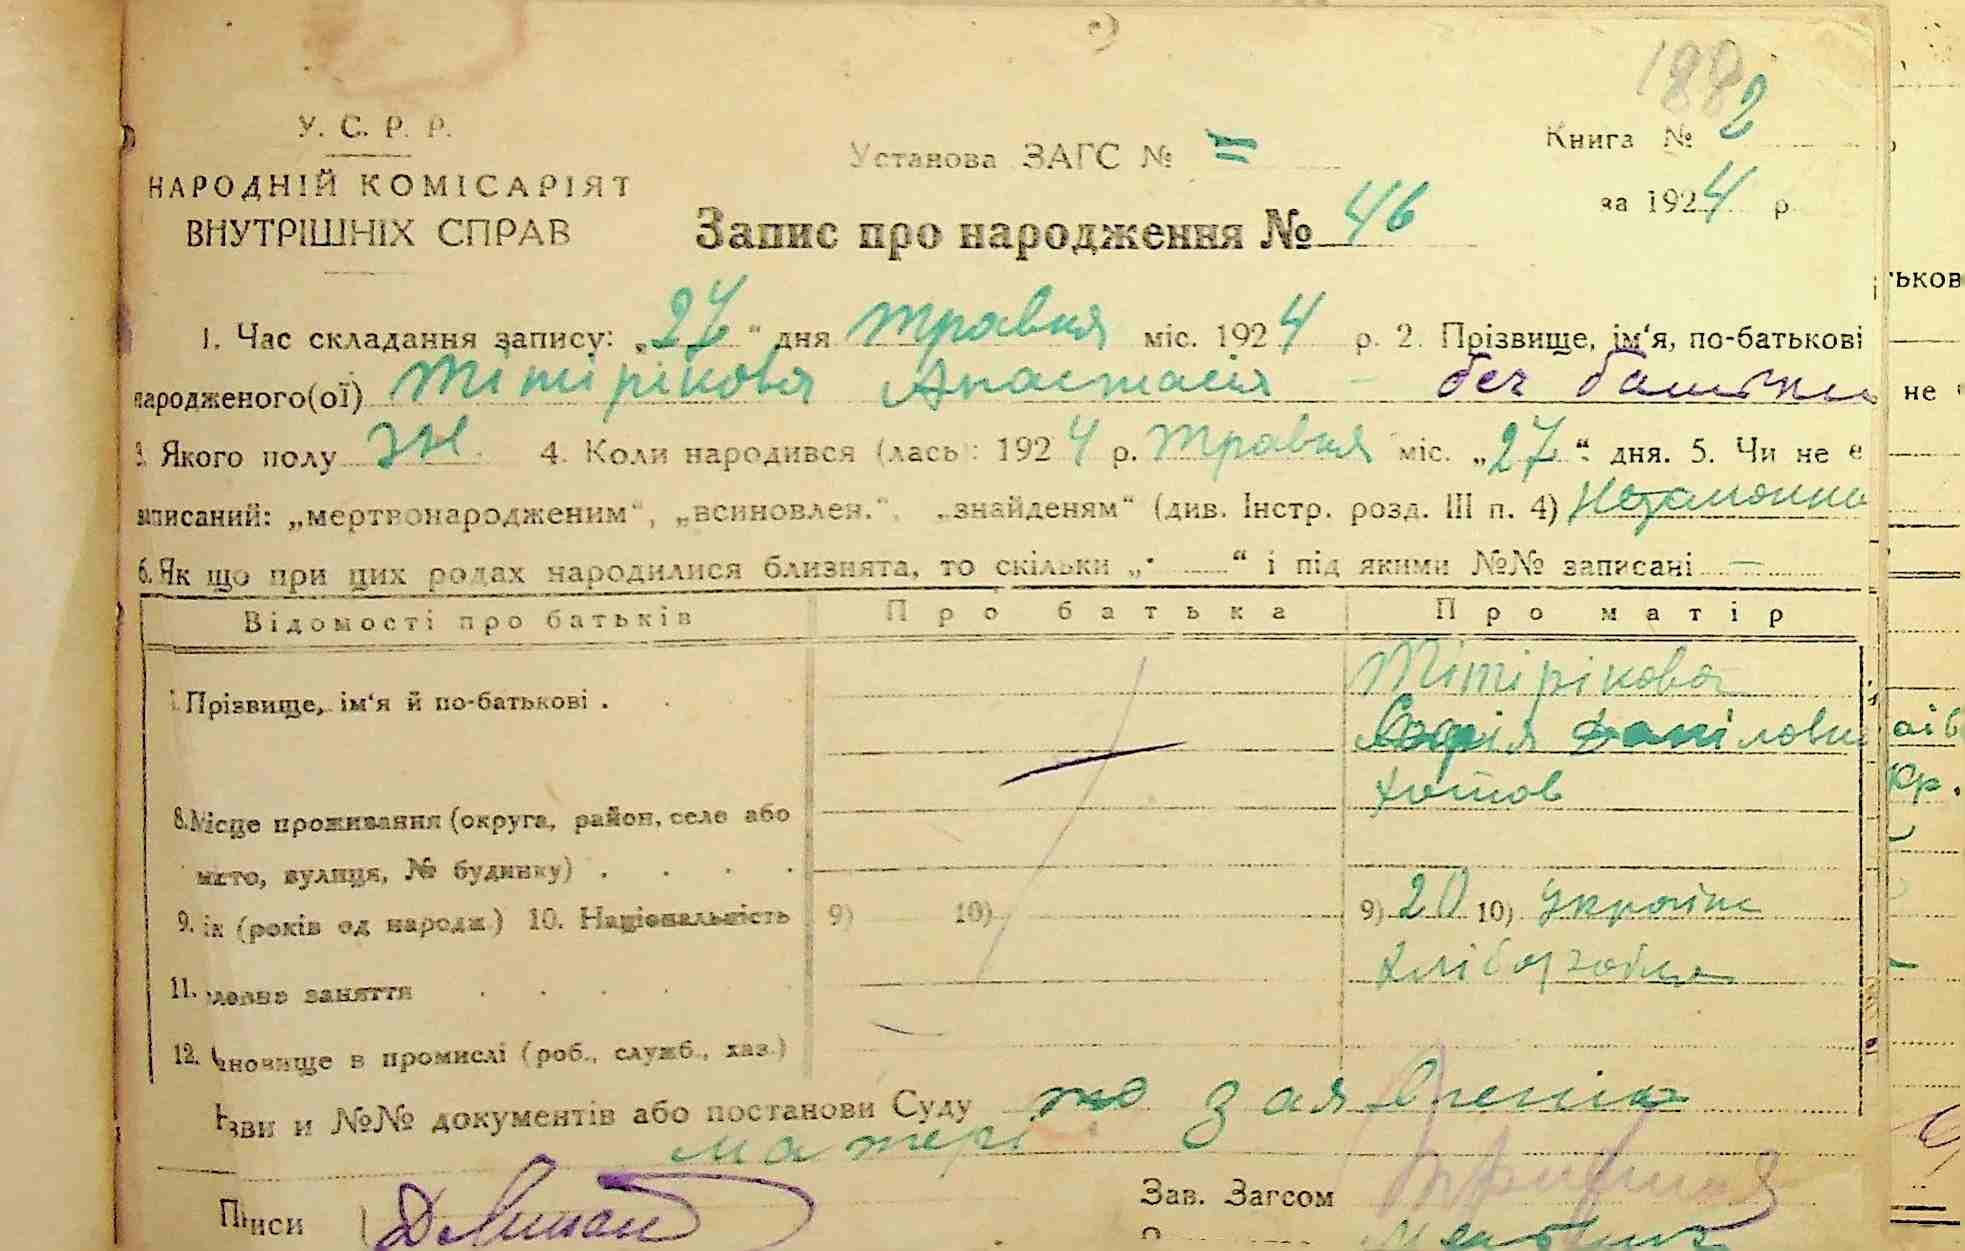 1882
У. С. Р. Р.
НАРОДНІЙ КОМІСАРІЯТ
ВНУТРІШНІХ СПРАВ
Установа ЗАГС №
Книга № 2
за 1924 р.
Запис про народження № 46
1. Час складання запису: „27“ дня травня міс. 1924 р. 2. Прізвище, ім‘я, по-батькові
народженого(ої) Тітірікова Анастасія - без батька
3. Якого полу ж. 4. Коли народився (лась): 1924 р. травня міс. „27“ дня. 5. Чи не є
записаний: „мертвонародженим“, „всиновлен.“, „знайденям“ (див. Інстр. розд. III п. 4) Незаконно
6. Як що при цих родах народилися близнята, то скільки „ “ і під якими №№ записані —
Відомості про батьків Про батька Про матір
Прізвище, ім‘я й по-батькові . Тітірікова
Софія Данілов
Хотов
8. Місце проживання (округа, район, село або
місто, вулиця, № будинку) . . . .
9. ік (років од народж.) 10. Національність 9) 10) 9) 20 10) Україн
11. заняття Хлібо
12. ановище в промислі (роб., служб., хаз.)
зви и №№ документів або постанови Суду по заявлению
матері
Підписи
Зав. Загсом
ьков
не
аів
кр.